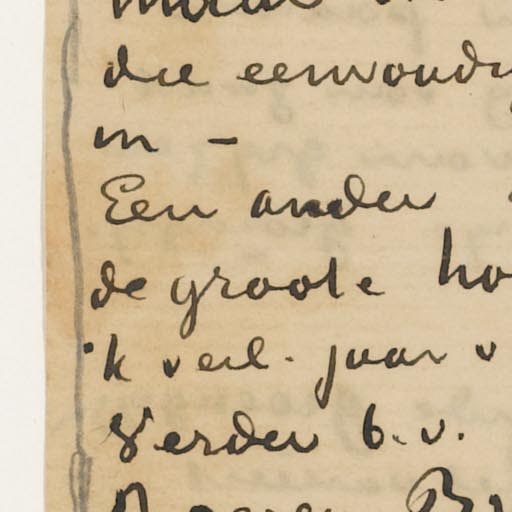 die eenvoudi
in –
Een ander
de groote ho
ik verl. jaar v
Verder b.v.